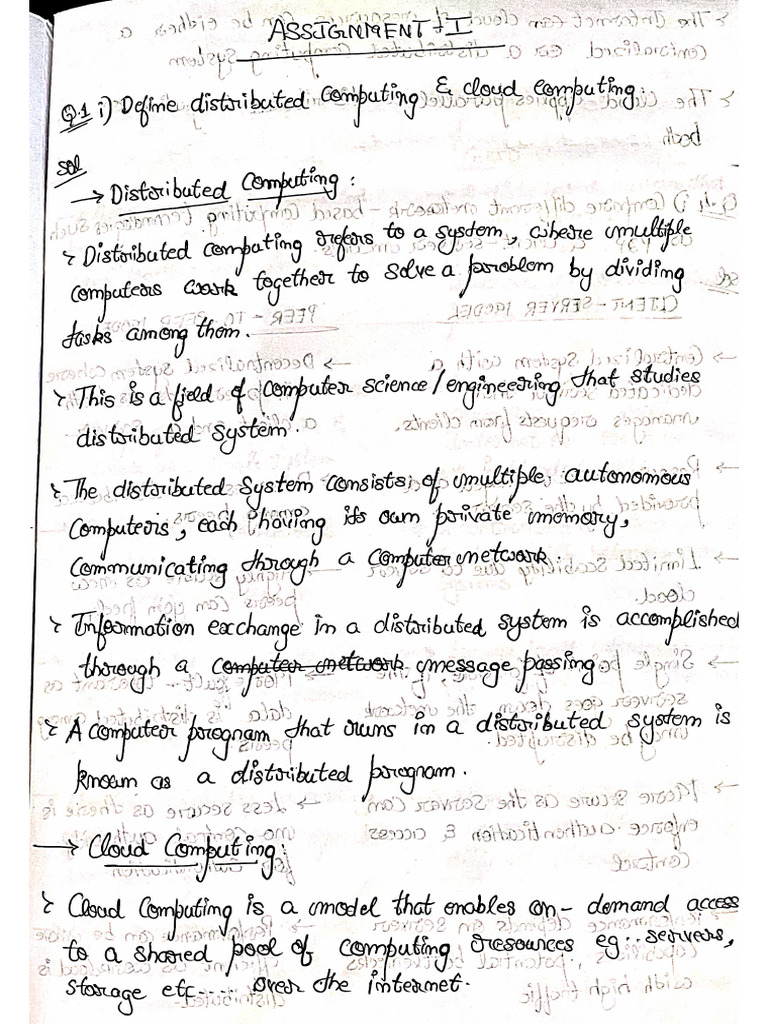 ASSIGNMENT-I
Q.1 i) Define distributed computing & cloud computing.
Sol
→ Distributed Computing:
Distributed computing refers to a system, where multiple
computers work together to solve a problem by dividing
tasks among them.
This is a field of computer science/engineering that studies
distributed system.
The distributed system consists of multiple autonomous
computers, each having its own private memory,
communicating through a computer network.
Information exchange in a distributed system is accomplished
through a computer network message passing
A computer program that runs in a distributed system is
known as a distributed program.
→ Cloud Computing:
Cloud Computing is a model that enables on-demand access
to a shared pool of computing resources eg.. servers,
storage etc..... over the internet.